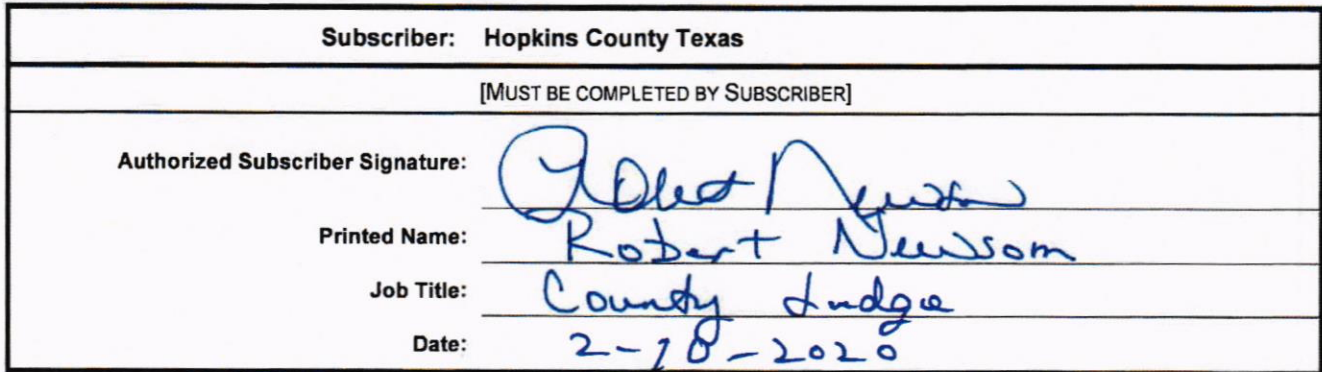 Subscriber: Hopkins County Texas
[MUST BE COMPLETED BY SUBSCRIBER]
Authorized Subscriber Signature: Robert Newsom
Printed Name: Robert Newsom
Job Title: County Judge
Date: 2-10-2020